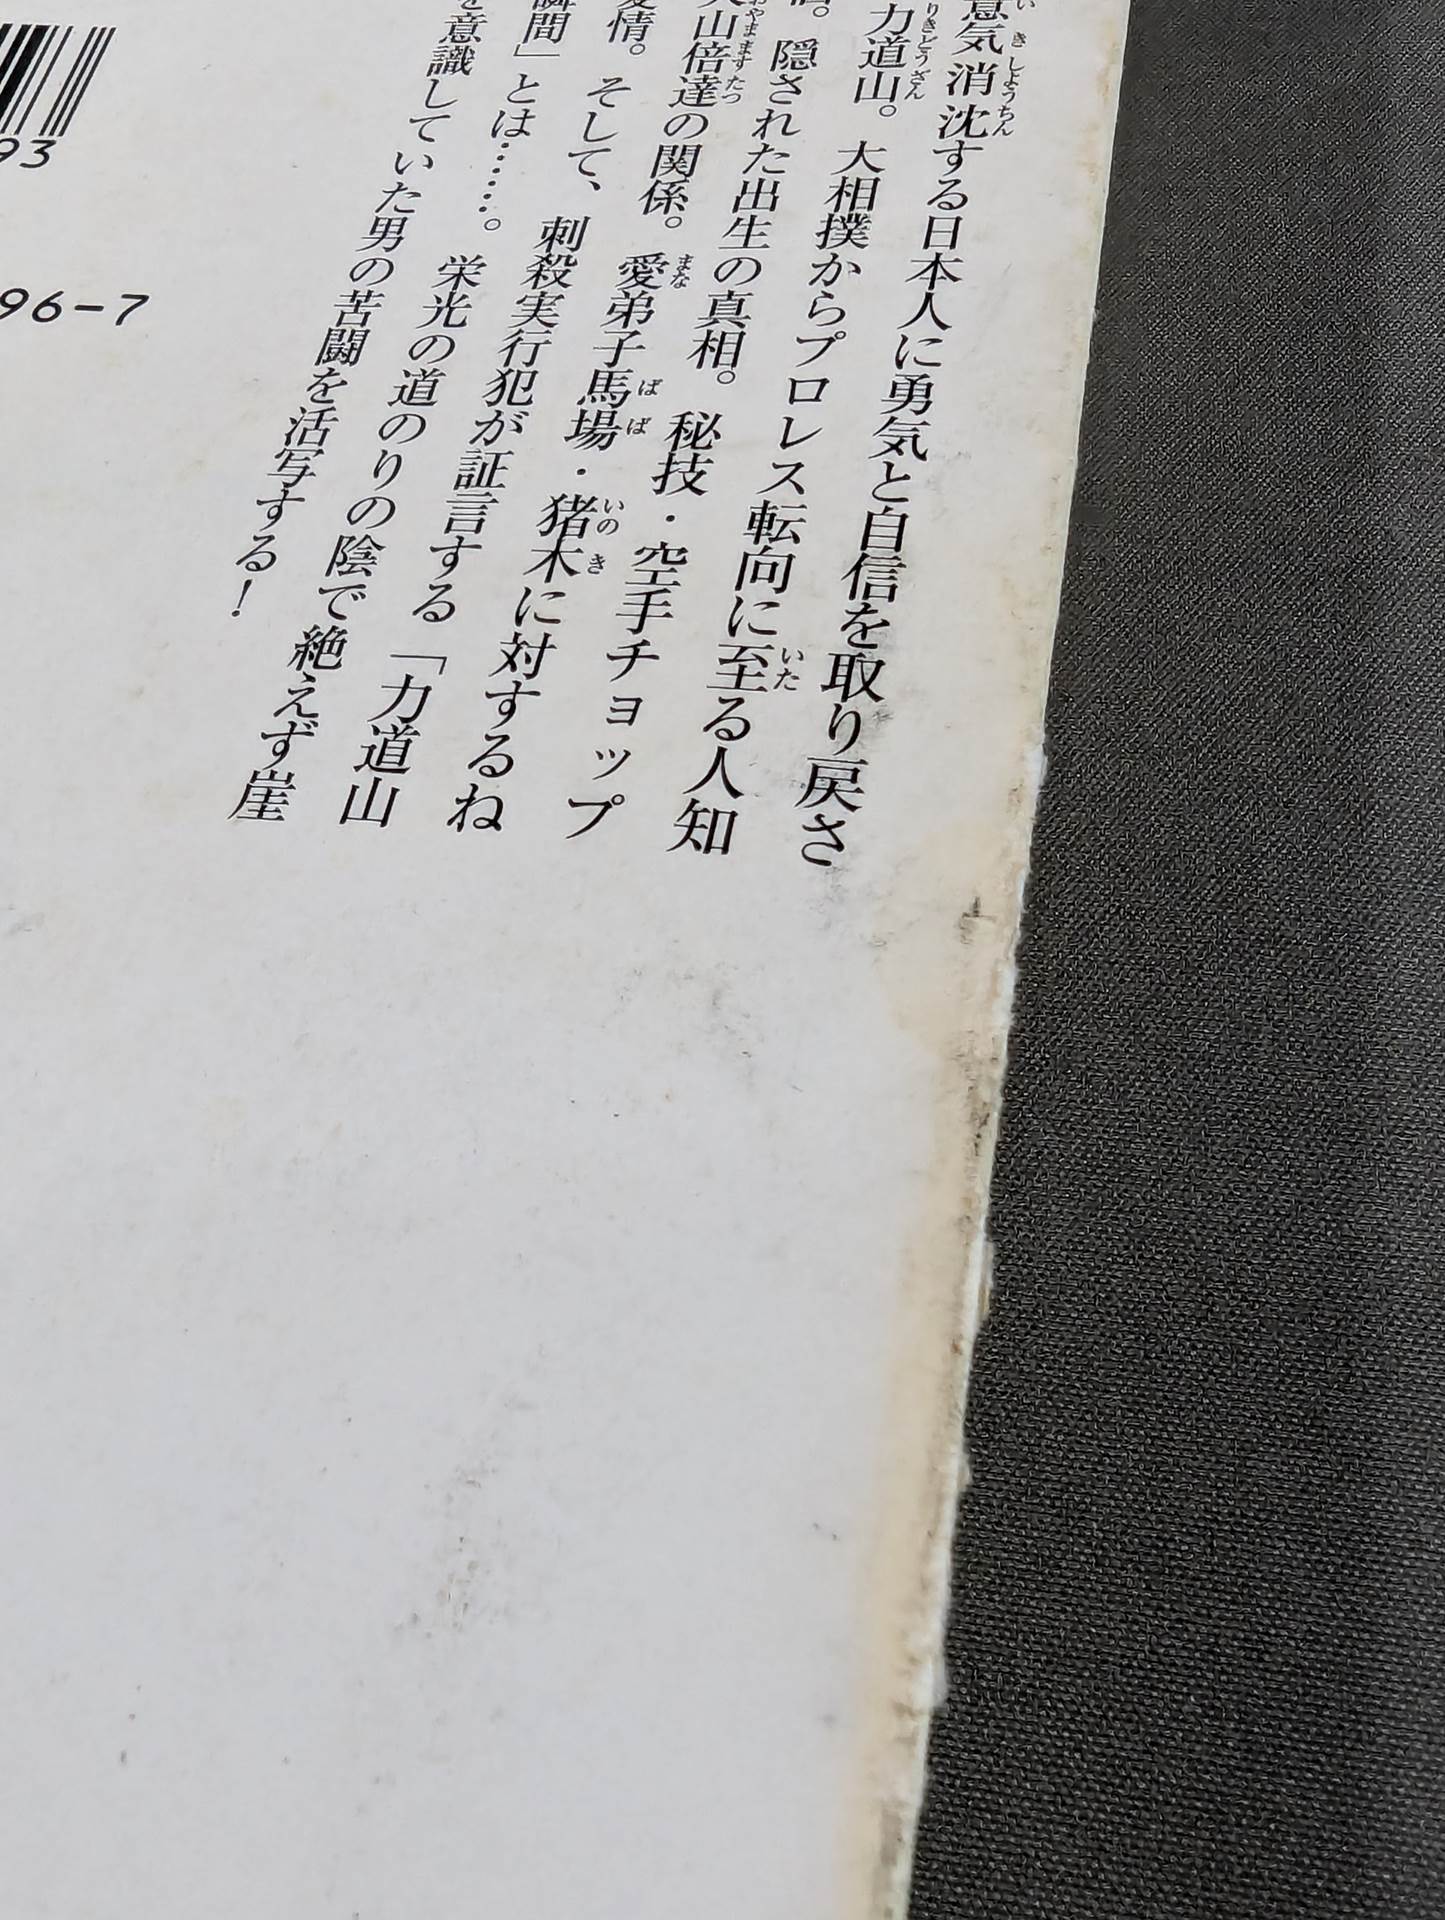 意気消沈する日本人に勇気と自信を取り戻さ
力道山。大相撲からプロレス転向に至る人知
。隠された出生の真相。秘技・空手チョップ
大山倍達の関係。愛弟子馬場・猪木に対するね
愛情。そして、刺殺実行犯が証言する「力道山
瞬間」とは……。栄光の道のりの陰で絶えず崖
を意識していた男の苦闘を活写する！
93
96-7